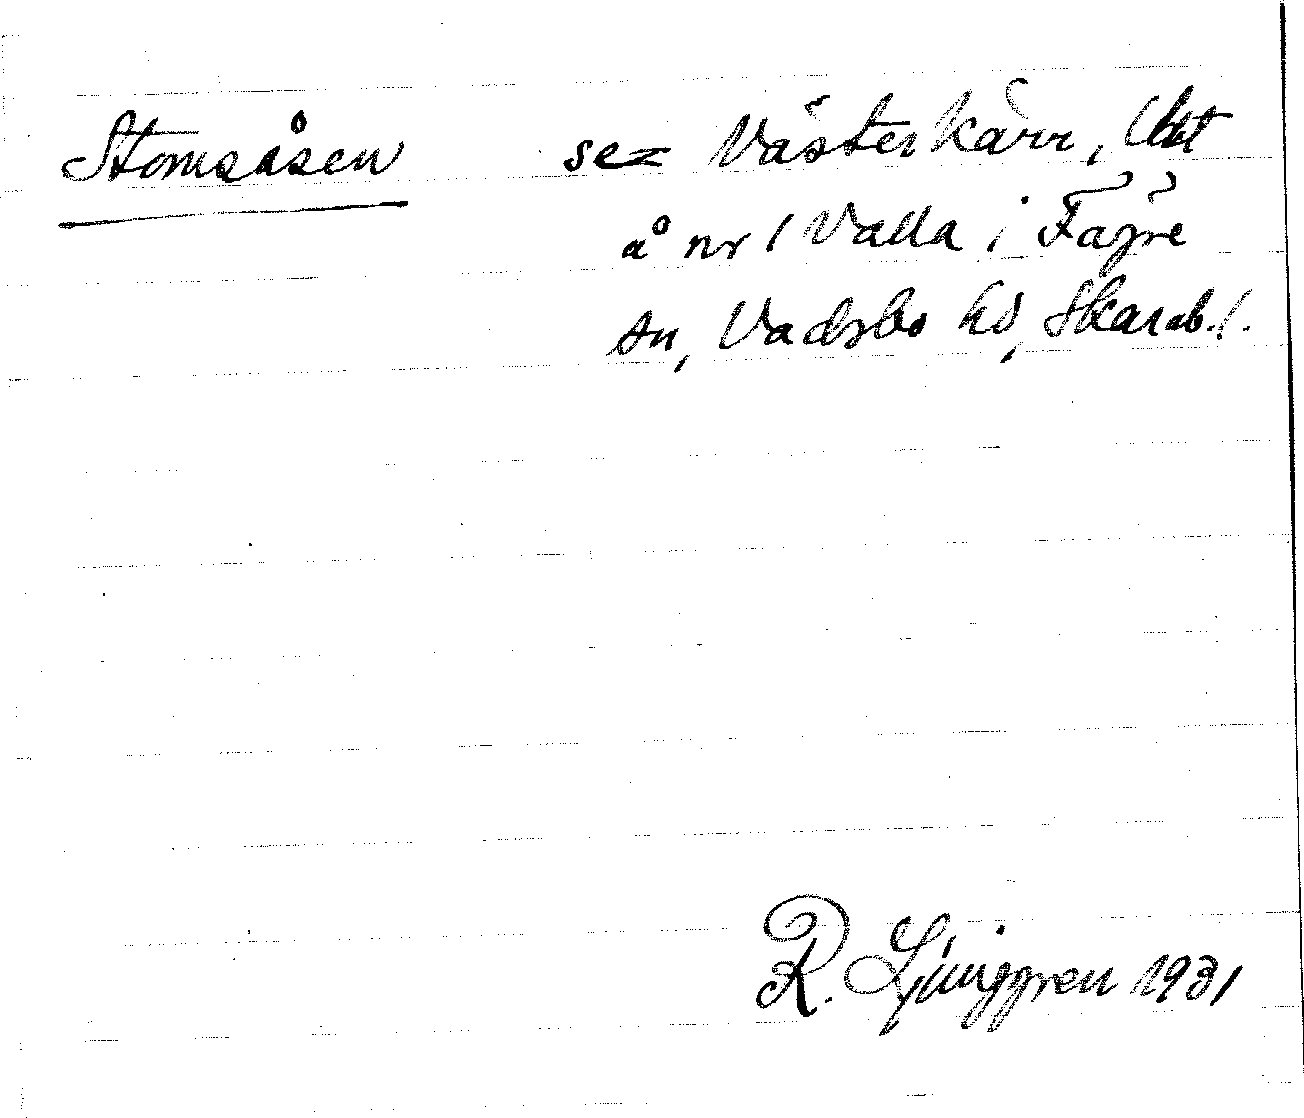 Stomsåsen se Västerkärr, lht
å nr 1 Valla i Fägre
sn, Vadsbo hd, Skarab. l.
R. Ljunggren 1931